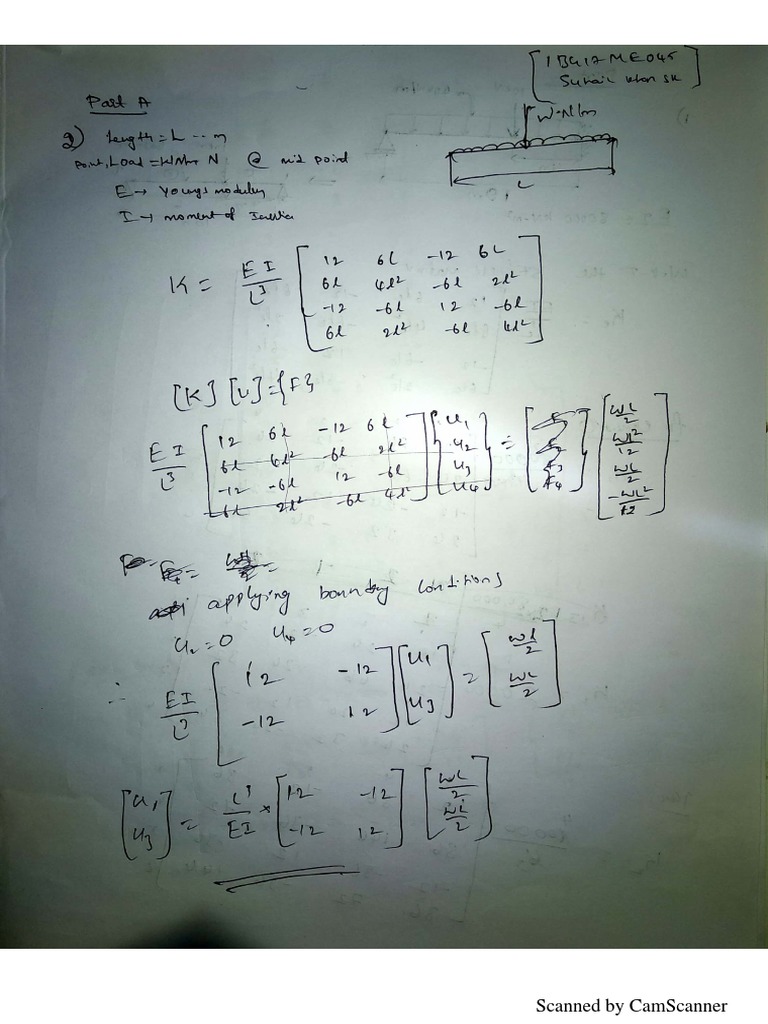 [ 1BG17ME045
Suhail khan sk ]
Part A
2) Length = L -- m
Point, Load = W N @ mid point
W-N/m
E → Youngs modulus
L
I → moment of Inertia
K = EI/L³ [ 12 6L -12 6L
6l 4l² -6l 2l²
-12 -6l 12 -6l
6l 2l² -6l 4l² ]
[K] [U] = {F}
EI/L³ [ 12 6l -12 6l
6l 4l² -6l 2l²
-12 -6l 12 -6l
6l 2l² -6l 4l² ] { u₁ u₂ u₃ u₄ } = [ F₃ F₄ ] [ WL/2 WL²/12 WL/2 -WL²/12 ]
applying boundry conditions
u₂=0 u₄=0
∴ EI/L³ [ 12 -12
-12 12 ] [ u₁ u₃ ] = [ Wl/2 WL/2 ]
[ u₁ u₃ ] = L³/EI * [ 12 -12
-12 12 ] [ WL/2 WL/2 ]
Scanned by CamScanner